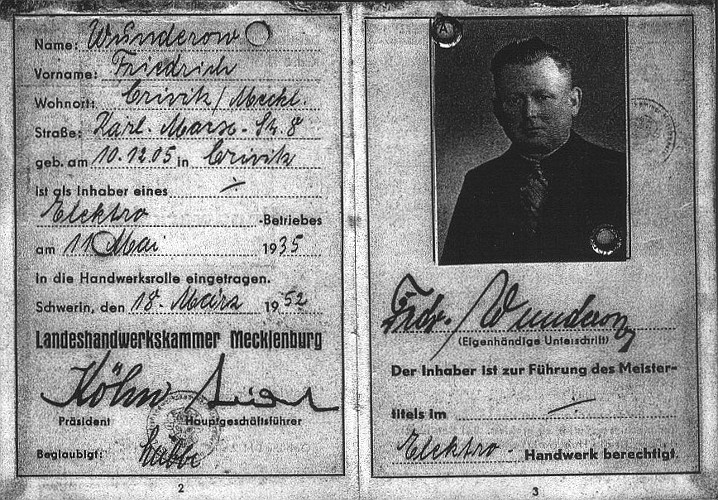 Name: Wunderow
Vorname: Friedrich
Wohnort: Crivitz/Meckl.
Straße: Karl-Marx-Str. 8
geb. am 10.12.05 in Crivitz
ist als Inhaber eines
Elektro -Betriebes
am 11 Mai 1935
in die Handwerksrolle eingetragen.
Schwerin, den 18. März 1952
Landeshandwerkskammer Mecklenburg
Köhn
Präsident Hauptgeschäftsführer
Beglaubigt:
2
A
Frdr. Wunderow
(Eigenhändige Unterschrift)
Der Inhaber ist zur Führung des Meister-
titels im
Elektro- Handwerk berechtigt.
3